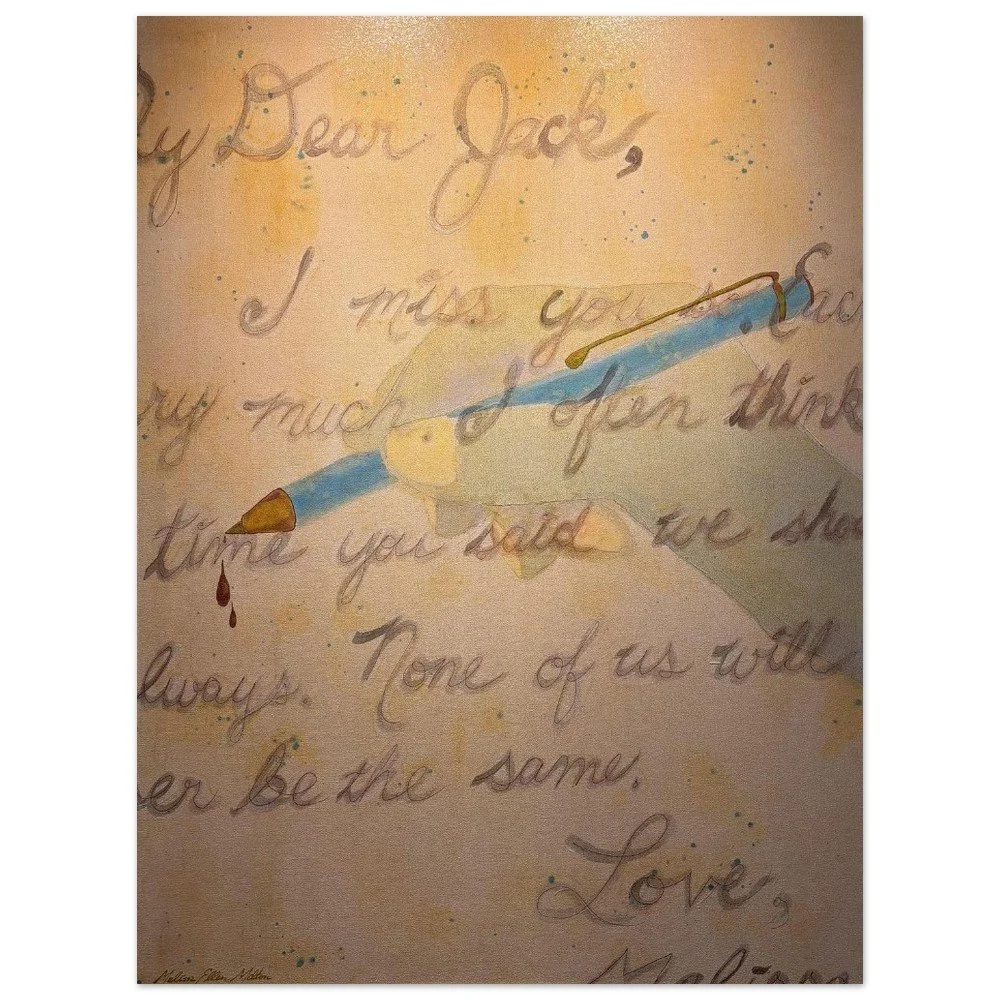 y Dear Jack,
I miss you so. Eac
ry much I often think
time you said we shou
lways. None of us will
er be the same.
Love,
Melissa